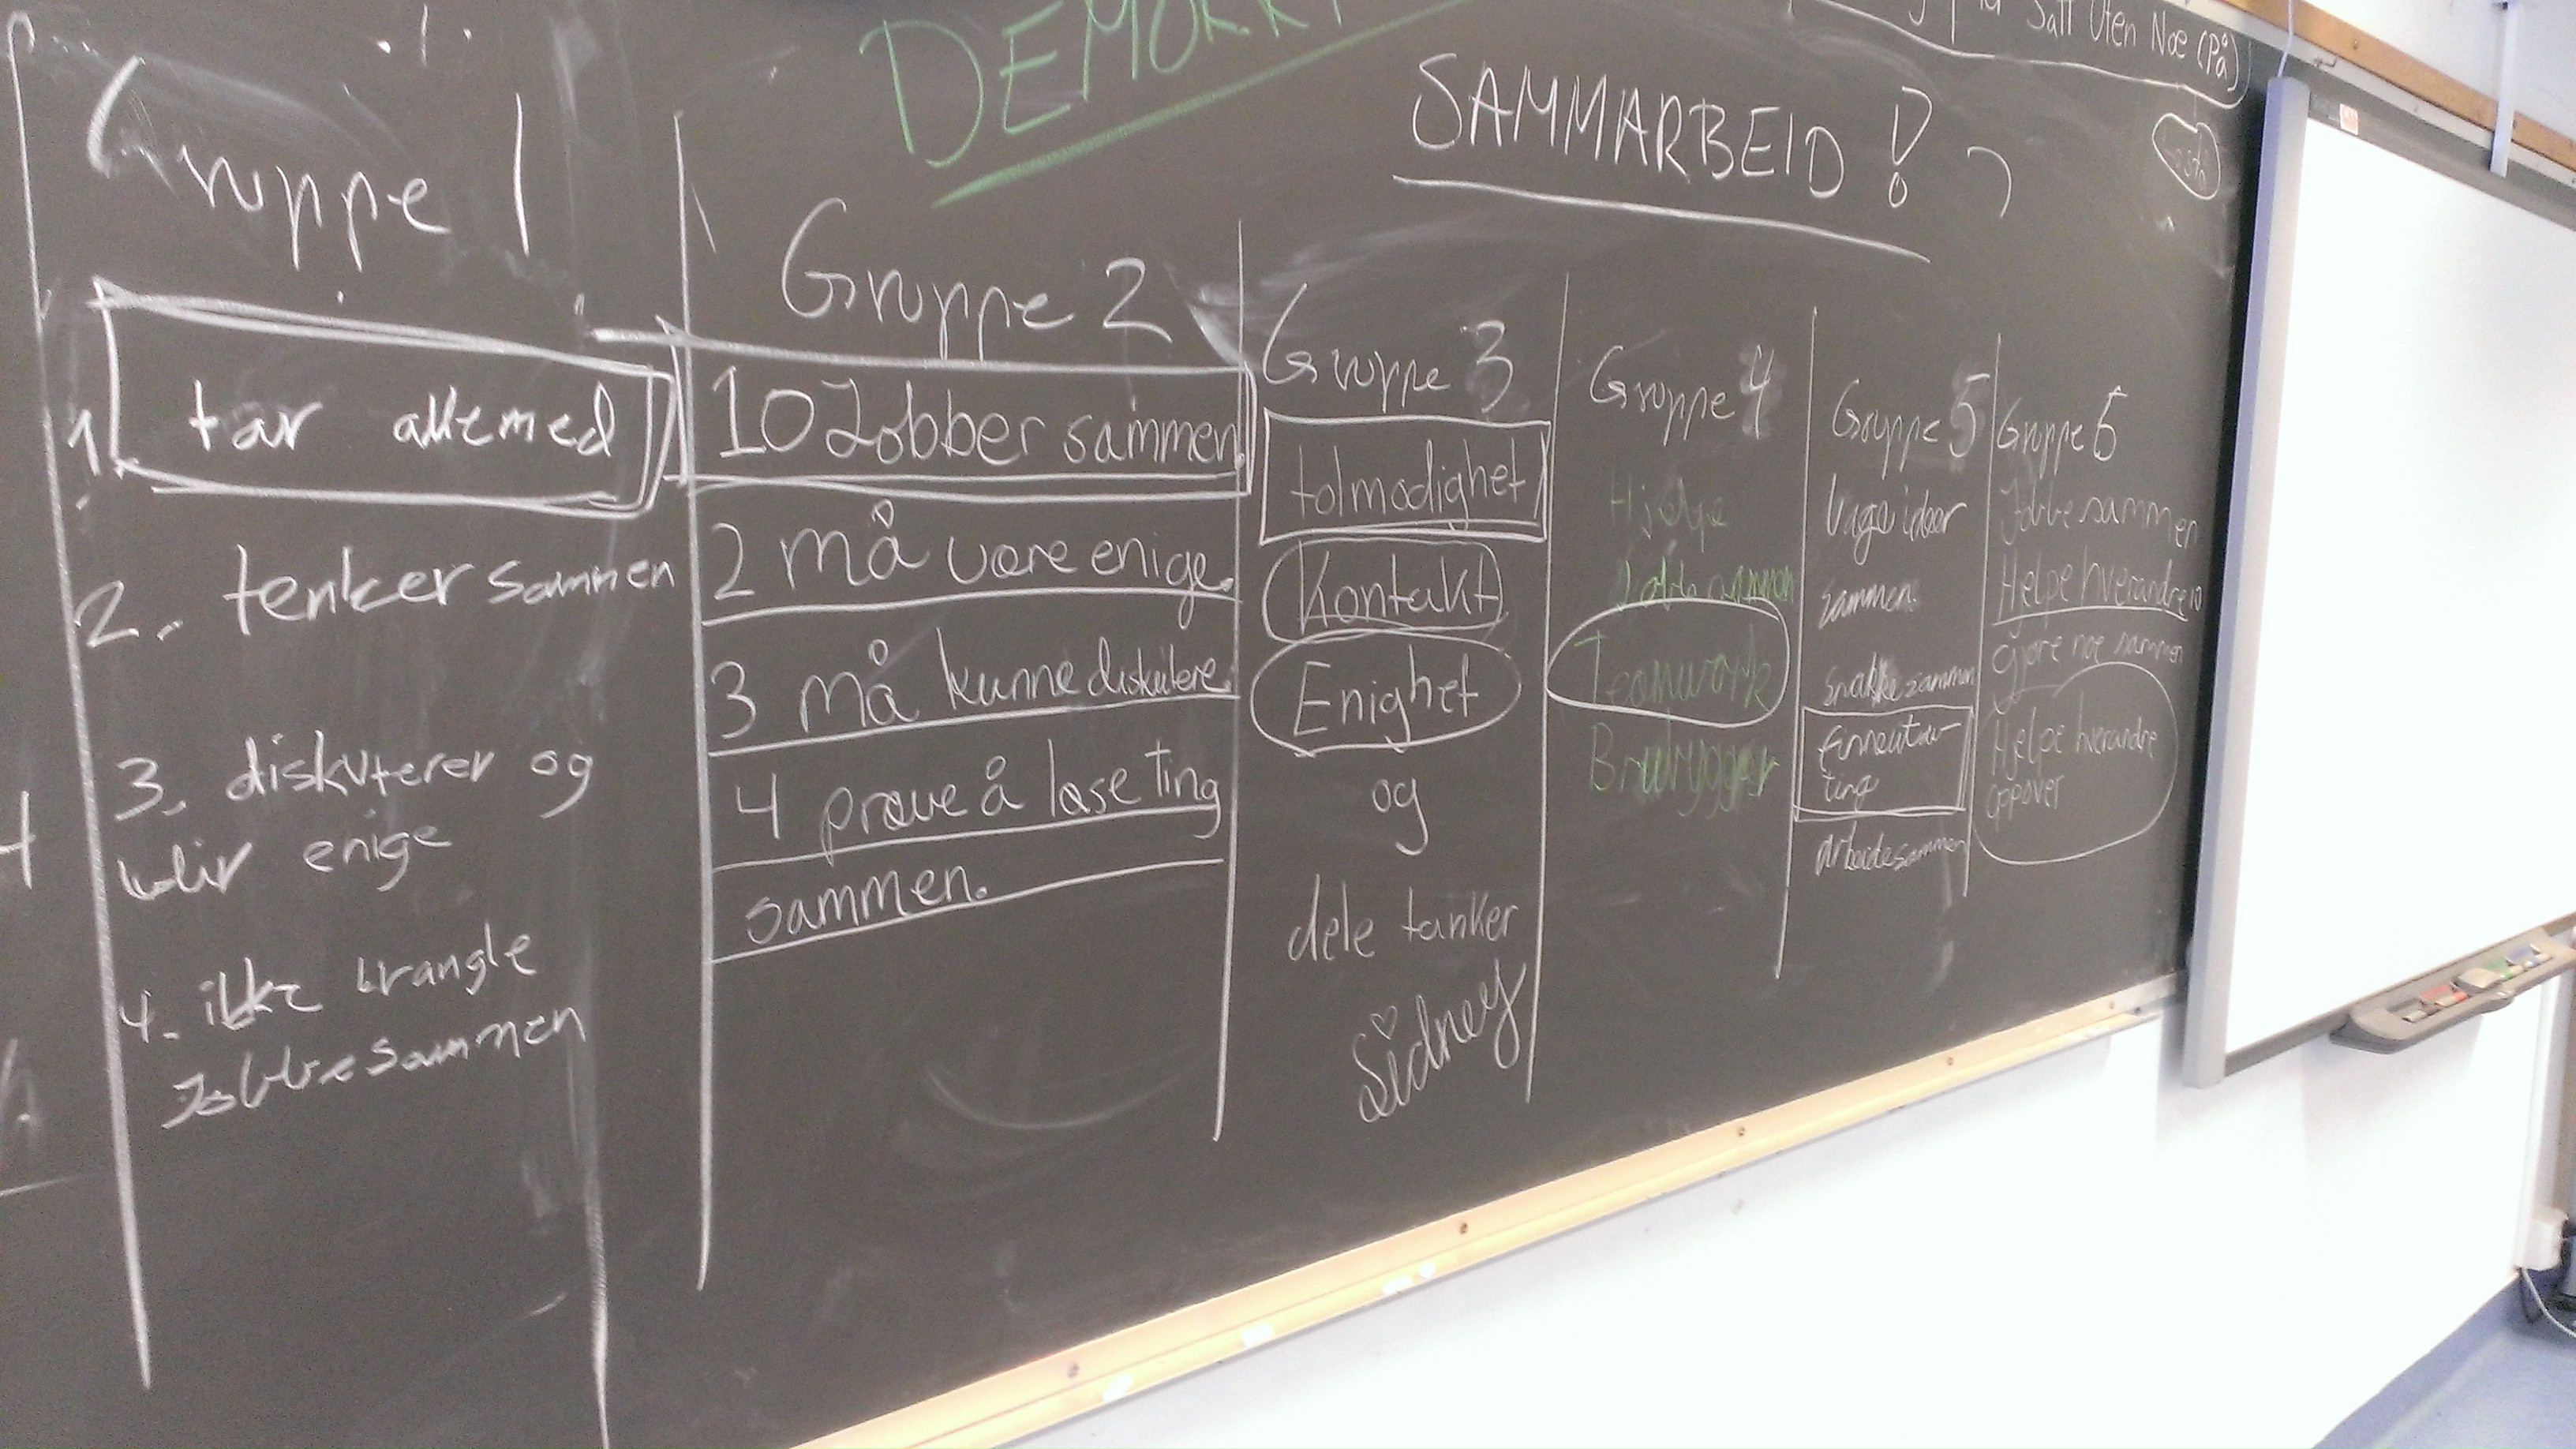 DEMOKR
Satt Uten Noe (på)
SAMMARBEID!
Gruppe 1
1. tar alle med
2. tenker sammen
3. diskuterer og
blir enige
4. ikke krangle
Jobbe sammen
Gruppe 2
10 Jobber sammen.
2 må være enige.
3 må kunne diskutere.
4 prøve å løse ting
sammen.
Gruppe 3
tolmodighet
Kontakt
Enighet
og
dele tanker
Sidney
Gruppe 4
Hjelpe
Jobbe sammen
Teamwork
Brubygger
Gruppe 5
lage ideer
sammen.
snakke sammen
finne ut av
ting
arbeide sammen
Gruppe 6
Jobbe sammen
Hjelpe hverandre
gjøre noe sammen
Hjelpe hverandre
oppover